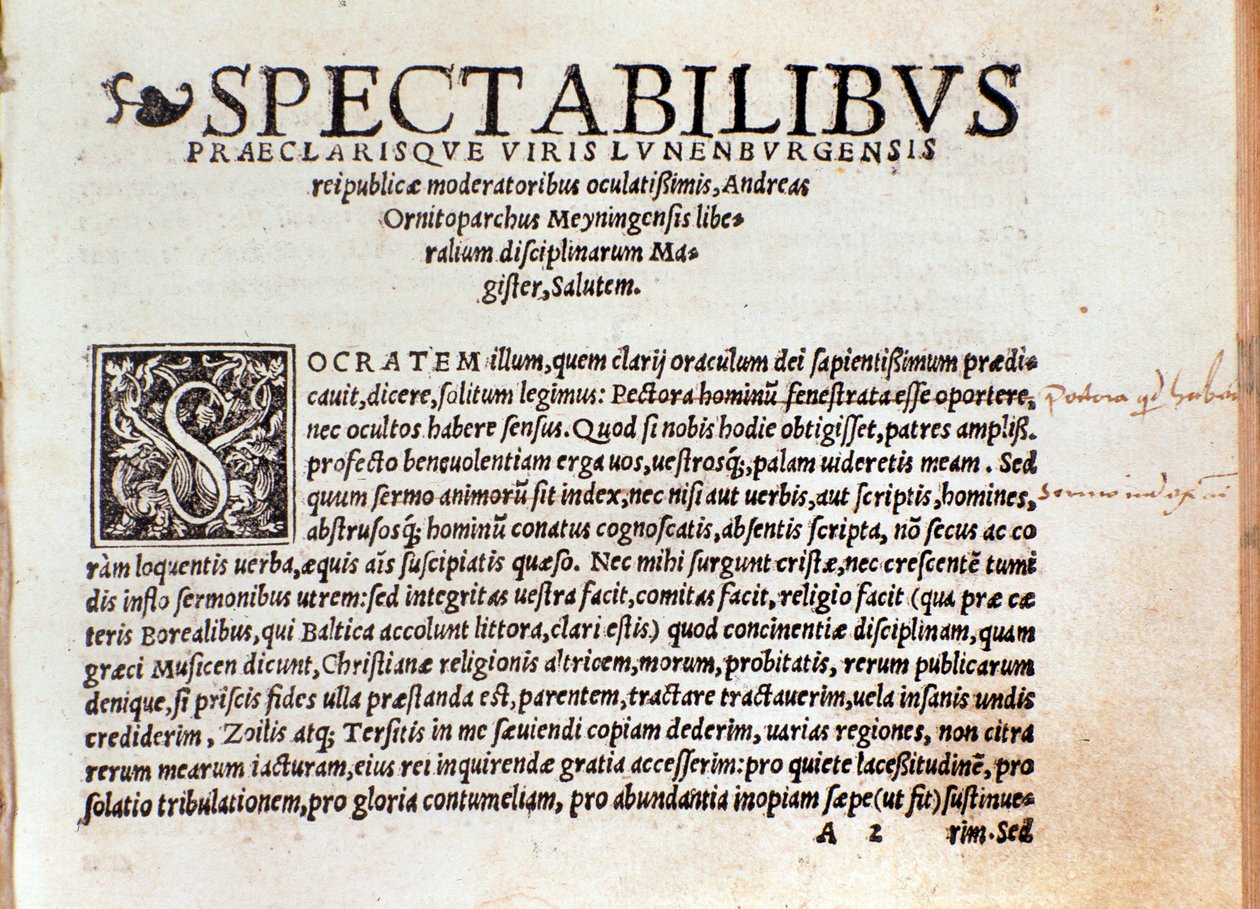 SPECTABILIBVS
PRAECLARISQVE VIRIS LVNENBVRGENSIS
reipublicæ moderatoribus oculatißimis, Andreas
Ornitoparchus Meyningenſis libe⸗
ralium diſciplinarum Ma⸗
giſter, Salutem.
SOCRATEM illum, quem clarij oraculum dei ſapientißimum prædi⸗
cauit, dicere, ſolitum legimus: Pectora hominū feneſtrata eſſe oportere, Pectora
nec ocultos habere ſenſus. Quod ſi nobis hodie obtigiſſet, patres ampliß.
profecto beneuolentiam erga uos, ueſtrosq́;, palam uideretis meam. Sed
quum ſermo animorū ſit index, nec niſi aut uerbis, aut ſcriptis, homines, Sermo index
abſtruſosq́; hominū conatus cognoſcatis, abſentis ſcripta, nō ſecus ac co
ràm loquentis uerba, æquis aīs ſuſcipiatis quæſo. Nec mihi ſurgunt criſtæ, nec creſcentē tumi
dis inflo ſermonibus utrem: ſed integritas ueſtra facit, comitas facit, religio facit (qua præ cæ
teris Borealibus, qui Baltica accolunt littora, clari eſtis) quod concinentiæ diſciplinam, quam
græci Muſicen dicunt, Chriſtianæ religionis altricem, morum, probitatis, rerum publicarum
denique, ſi priſcis fides ulla præſtanda eſt, parentem, tractare tractauerim, uela inſanis undis
crediderim, Zoilis atq; Terſitis in me ſæuiendi copiam dederim, uarias regiones, non citra
rerum mearum iacturam, eius rei inquirendæ gratia acceſſerim: pro quiete laceßitudinē, pro
ſolatio tribulationem, pro gloria contumeliam, pro abundantia inopiam ſæpe (ut fit) ſuſtinue⸗
A 2 rim. Sed